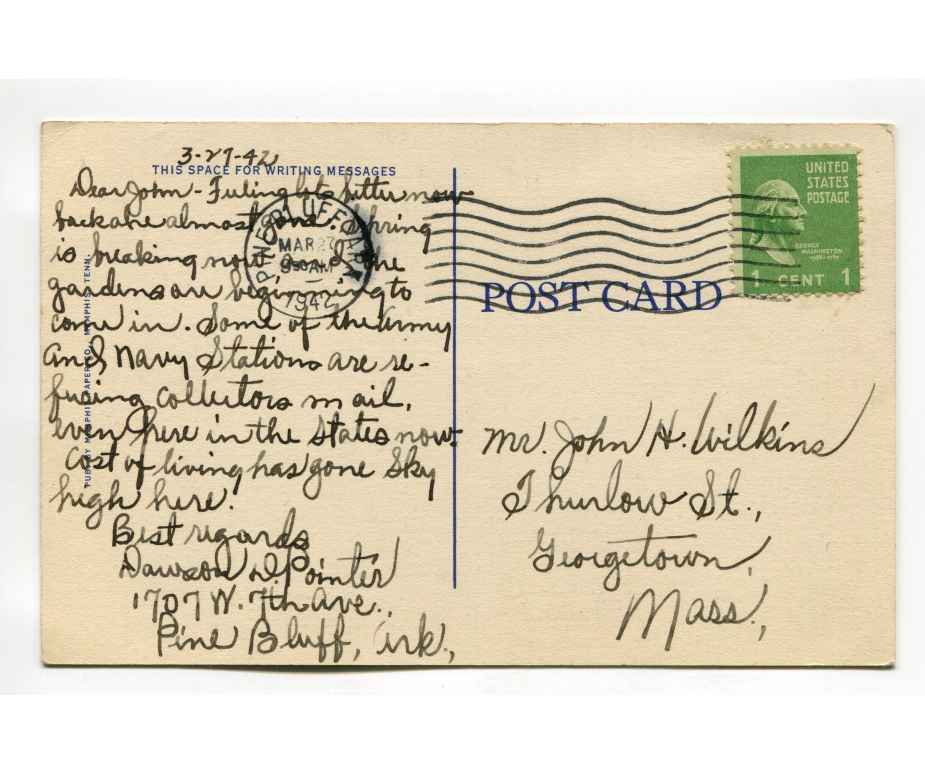 3-27-42
THIS SPACE FOR WRITING MESSAGES
Dear John - Feeling lots better now
backache almost gone. Spring
is breaking now and the
gardens are beginning to
come in. Some of the Army
and Navy Stations are re-
fusing collectors mail,
even here in the States now.
Cost of living has gone sky
high here.
Best regards
Dawson D. Pointer
1707 W. 7th Ave.,
Pine Bluff, Ark.,
PINE BLUFF ARK.
MAR 27
930 AM
1942
PUB. BY MEMPHIS PAPER CO., MEMPHIS, TENN.
UNITED
STATES
POSTAGE
GEORGE
WASHINGTON
1 CENT 1
POST CARD
Mr. John H. Wilkins
Thurlow St.,
Georgetown,
Mass.,